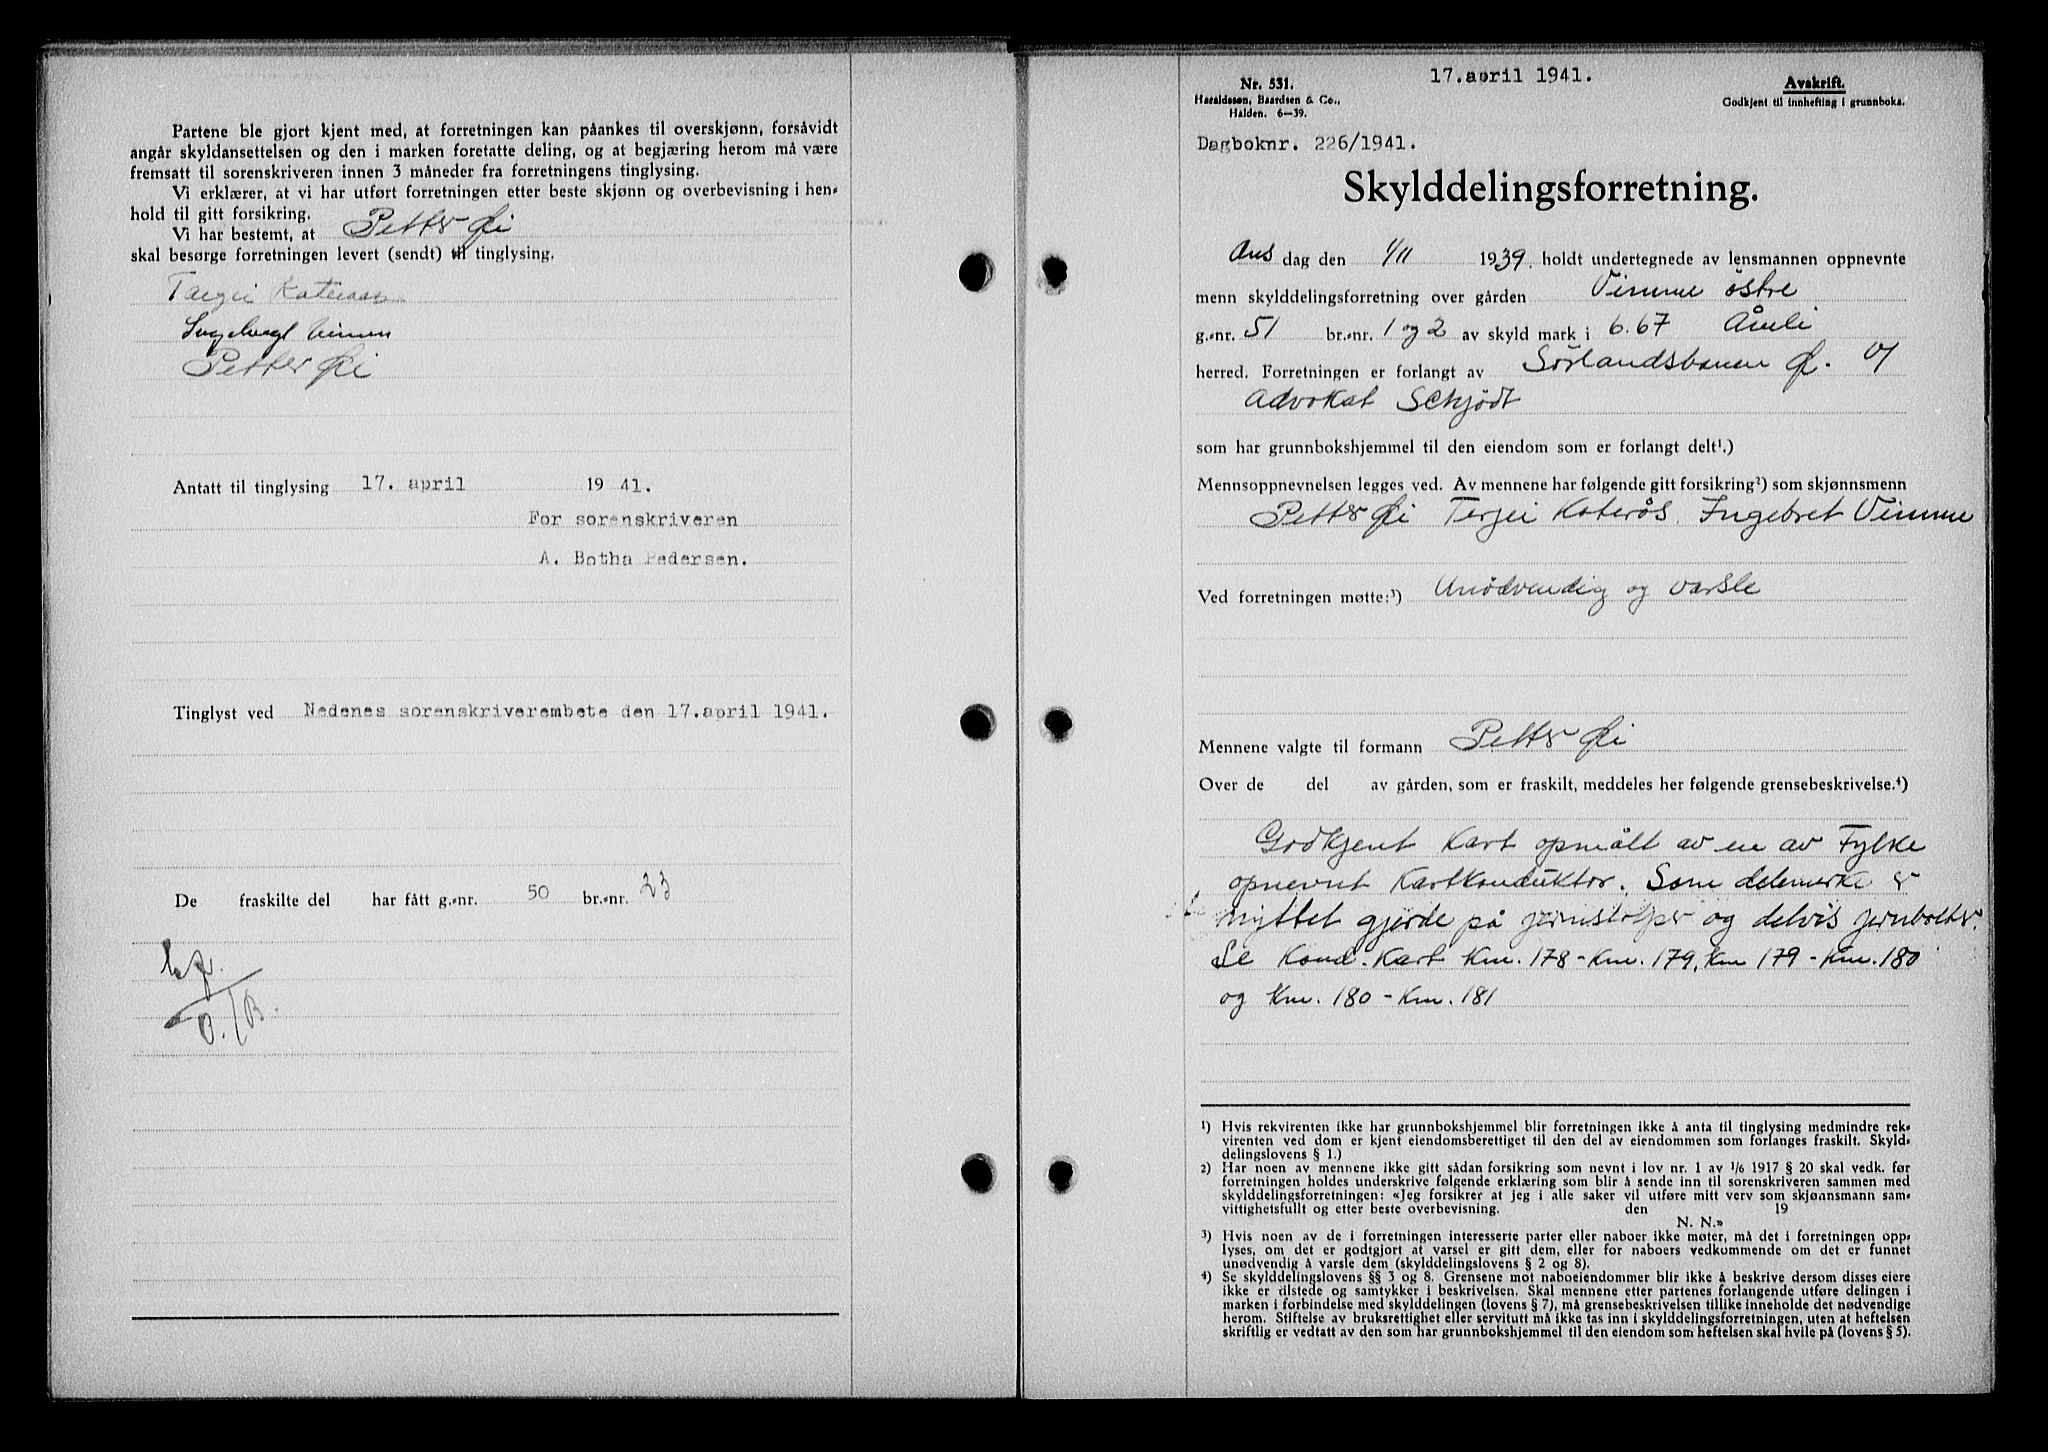 Partene ble gjort kjent med, at forretningen kan påankes til overskjønn, forsåvidt
angår skyldansettelsen og den i marken foretatte deling, og at begjæring herom må være
fremsatt til sorenskriveren innen 3 måneder fra forretningens tinglysing.
Vi erklærer, at vi har utført forretningen etter beste skjønn og overbevisning i hen-
hold til gitt forsikring.
Vi har bestemt, at Petter Øi
skal besørge forretningen levert (sendt) til tinglysing.
Tarjei Kateraas
Ingebregt Vimme
Petter Øi
Antatt til tinglysing 17. april 19 41.
For sorenskriveren
A. Botha Pedersen.
Tinglyst ved Nedenes sorenskriverembete den 17.april 1941.
De fraskilte del har fått g.-nr. 50 br.-nr. 23
Nr. 531.
Haraldssøn, Baardsen & Co.,
Halden. 6—39.
17.april 1941.
Avskrift.
Godkjent til innhefting i grunnboka.
Dagboknr. 226/1941.
Skylddelingsforretning.
Ons dag den 1/11 1939. holdt undertegnede av lensmannen oppnevnte
menn skylddelingsforretning over gården Vimme østre
g.-nr. 51 br.-nr. 1 og 2 av skyld mark i 6.67 Åmli
herred. Forretningen er forlangt av Sørlandsbanen Ø. v/
Advokat Schjødt
som har grunnbokshjemmel til den eiendom som er forlangt delt¹.)
Mennsoppnevnelsen legges ved. Av mennene har følgende gitt forsikring²) som skjønnsmenn
Petter Øi Terjei Katerås. Ingebret Vimme
Ved forretningen møtte:³) Unødvendig og varsle
Mennene valgte til formann Petter Øi
Over de del av gården, som er fraskilt, meddeles her følgende grensebeskrivelse.⁴)
Godkjent Kart opmålt av en av Fylke
opnevnt Kartkonduktør. Som delemerke er
nyttet gjerde på jernstolper og delvis jernbolter.
Se Kond. Kart Km. 178 - Km. 179, Km 179 - Km. 180
og Km. 180 - Km. 181
¹) Hvis rekvirenten ikke har grunnbokshjemmel blir forretningen ikke å anta til tinglysing medmindre rek-
virenten ved dom er kjent eiendomsberettiget til den del av eiendommen som forlanges fraskilt. Skyld-
delingslovens § 1.)
²) Har noen av mennene ikke gitt sådan forsikring som nevnt i lov nr. 1 av 1/6 1917 § 20 skal vedk. før
forretningen holdes underskrive følgende erklæring som blir å sende inn til sorenskriveren sammen med
skylddelingsforretningen: «Jeg forsikrer at jeg i alle saker vil utføre mitt verv som skjønnsmann sam-
vittighetsfullt og etter beste overbevisning. den 19
N. N.»
³) Hvis noen av de i forretningen interesserte parter eller naboer ikke møter, må det i forretningen opp-
lyses, om det er godtgjort at varsel er gitt dem, eller for naboers vedkommende om det er funnet
unødvendig å varsle dem (skylddelingslovens § 2 og 8).
⁴) Se skylddelingslovens §§ 3 og 8. Grensene mot naboeiendommer blir ikke å beskrive dersom disses eiere
ikke er tilstede og samtykker i beskrivelsen. Skal mennene etter partenes forlangende utføre delingen i
marken i forbindelse med skylddelingen (lovens § 7), må grensebeskrivelsen tillike inneholde det nødvendige
herom. Stiftelse av bruksrettighet eller servitutt må ikke tas inn i skylddelingsforretningen, uten at heftelsen
skriftlig er vedtatt av den som har grunnbokshjemmel til den eiendom som heftelsen skal hvile på (lovens § 5).